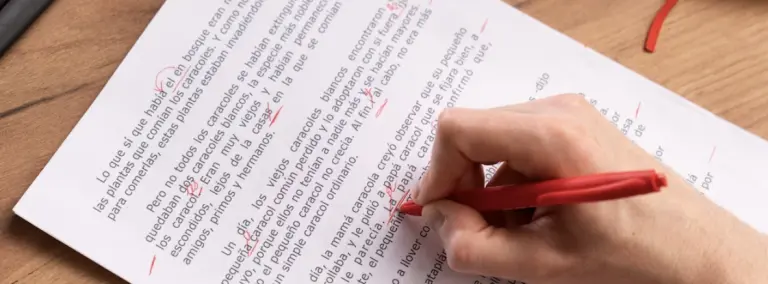 Lo que sí que había el en bosque eran
las plantas que comían los caracoles. Y como no
para comerlas, estas plantas estaban invadiéndo
Pero no todos los caracoles se habían extingui
quedaban dos caracoles blancos, la especie más noble
los caracole. Eran muy viejos y habían permanec
escondidos, lejos de la casas en la que se comían
amigos, primos y hermanos.
Un día, los viejos caracoles blancos encontraron
pequeña caracol común perdido y lo adoptaron con si fuera
yo, porque ellos no tenían a nadie más y se hacían mayores.
o el pequeño caracol no crecía. Al fin al cabo, no era más
un simple caracol ordinario.
día, la mamá caracola creyó observar que su pequeño
ollaba, y le pidió a papá caracol que se fijara bien, a
le parecía. papá confirmó que,
te, el pequeñín -dijo
a llover
de
por